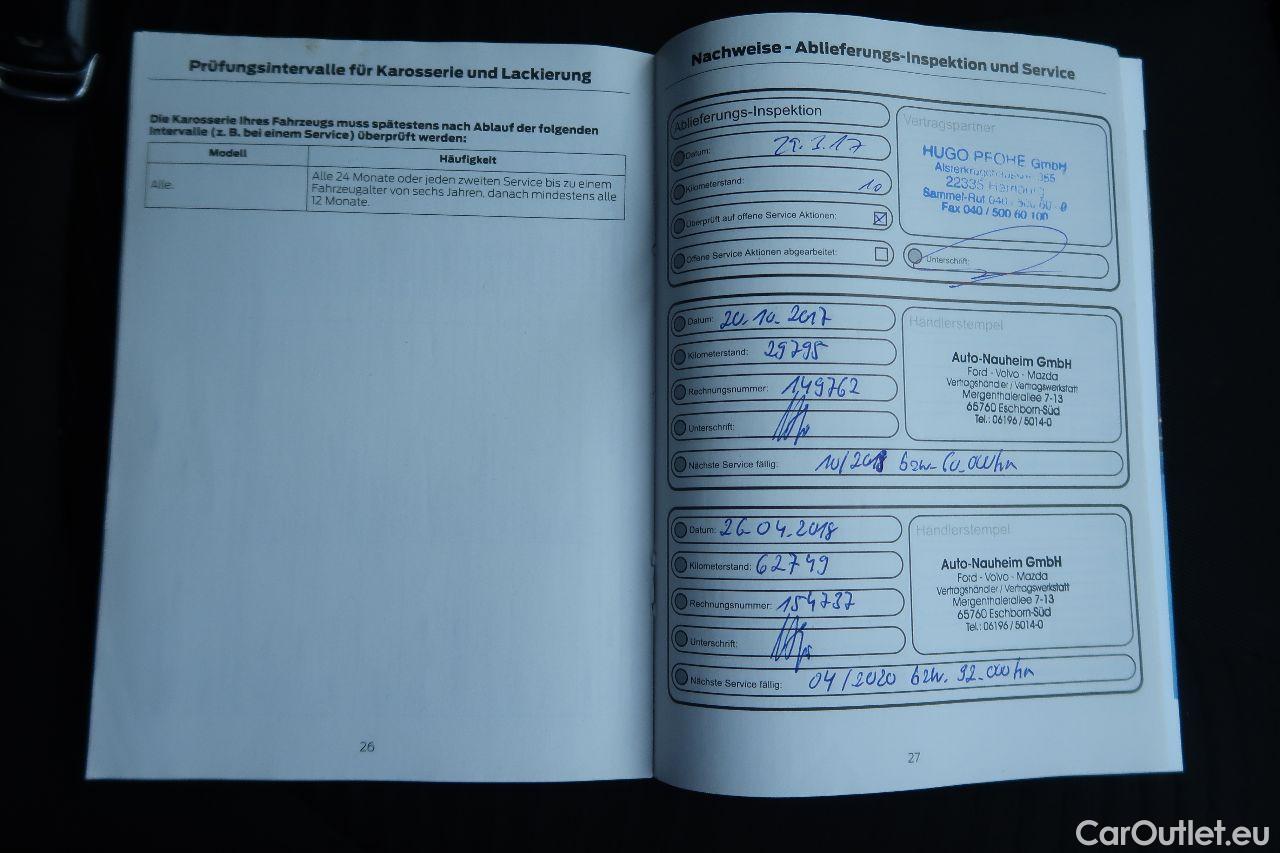 Prüfungsintervalle für Karosserie und Lackierung
Die Karosserie Ihres Fahrzeugs muss spätestens nach Ablauf der folgenden
Intervalle (z. B. bei einem Service) überprüft werden:
Modell
Häufigkeit
Alle.
Alle 24 Monate oder jeden zweiten Service bis zu einem
Fahrzeugalter von sechs Jahren, danach mindestens alle
12 Monate.
26
Nachweise - Ablieferungs-Inspektion und Service
Ablieferungs-Inspektion
Datum:
Kilometerstand: 10
Überprüft auf offene Service Aktionen:
Offene Service Aktionen abgearbeitet:
Vertragspartner
HUGO PFOHE GmbH
355
22335 Hamburg
Sammel-Ruf 040
Fax 040 / 500 60 100
Unterschrift:
Datum: 20.10.2017
Kilometerstand: 29795
Rechnungsnummer: 149762
Unterschrift:
Nächste Service fällig: 10/2018 bzw. 60.000km
Händlerstempel
Auto-Nauheim GmbH
Ford - Volvo - Mazda
Vertragshändler / Vertragswerkstatt
Mergenthalerallee 7-13
65760 Eschborn-Süd
Tel.: 06196 / 5014-0
Datum: 26.04.2018
Kilometerstand: 62749
Rechnungsnummer: 154737
Unterschrift:
Nächste Service fällig: 04/2020 bzw. 92.000km
Händlerstempel
Auto-Nauheim GmbH
Ford - Volvo - Mazda
Vertragshändler / Vertragswerkstatt
Mergenthalerallee 7-13
65760 Eschborn-Süd
Tel.: 06196 / 5014-0
27
CarOutlet.eu